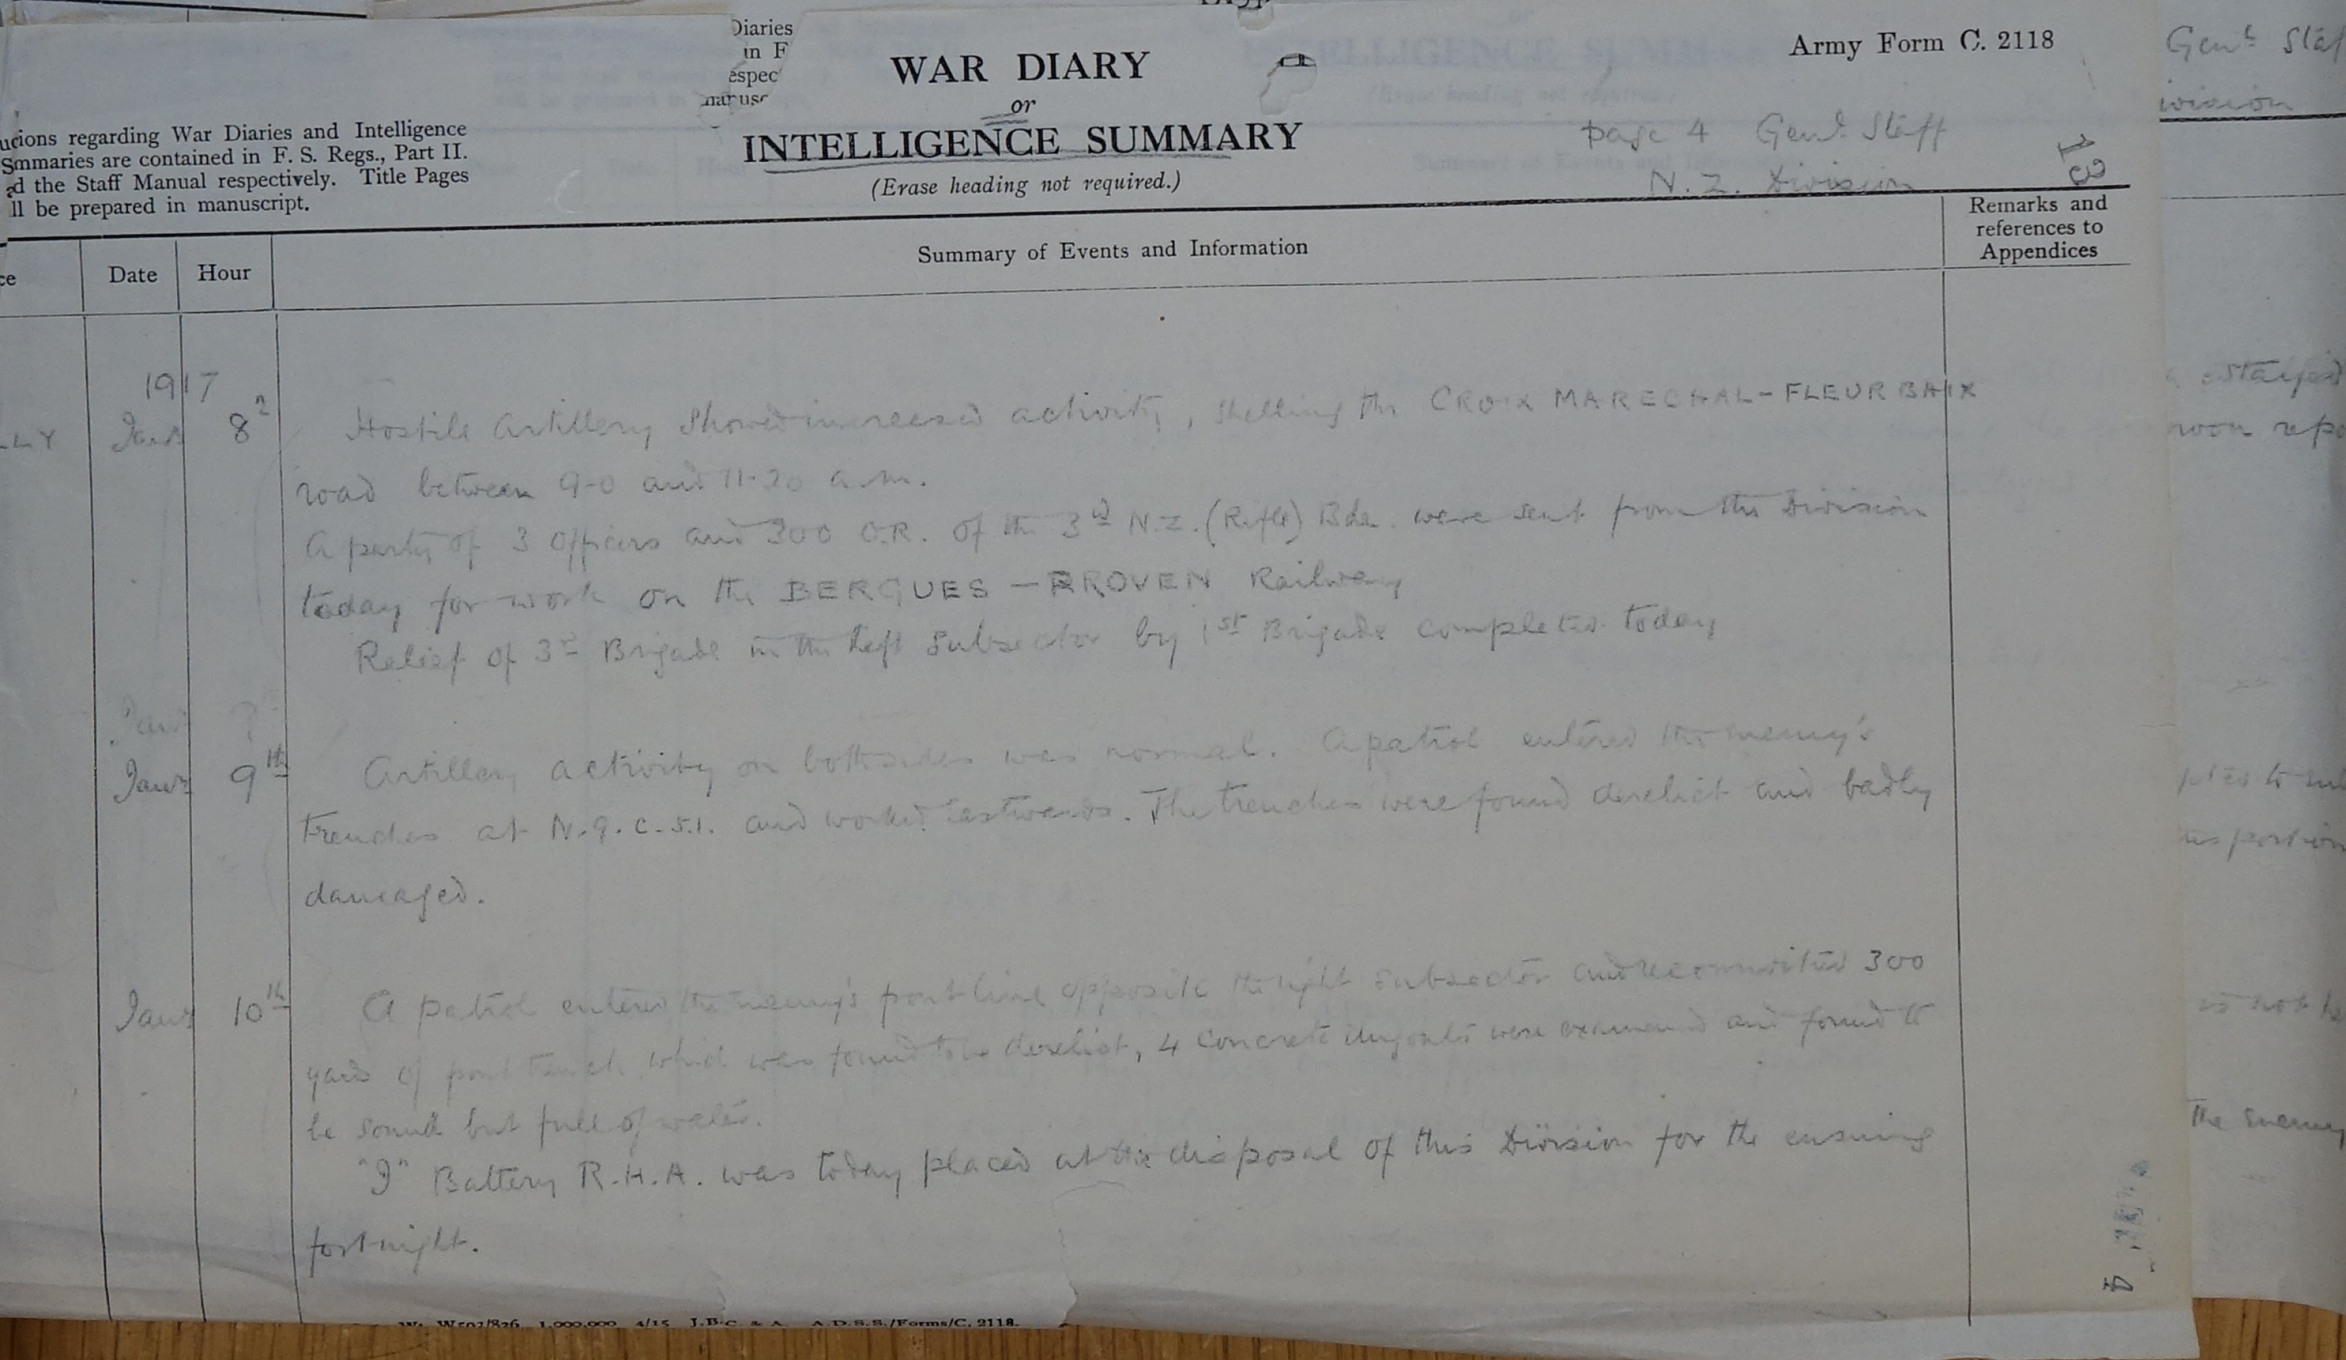 Diaries
in F
espec
manusc
WAR DIARY
or
INTELLIGENCE SUMMARY
(Erase heading not required.)
Army Form C. 2118
page 4 Genl. Staff
N. Z. Division
13
ucions regarding War Diaries and Intelligence
Smmaries are contained in F. S. Regs., Part II.
ed the Staff Manual respectively. Title Pages
ll be prepared in manuscript.
ce
Date
Hour
Summary of Events and Information
Remarks and
references to
Appendices
1917
LLY Jany 8 Hostile Artillery showed increased activity, shelling the CROIX MARECHAL-FLEURBAIX
road between 9-0 and 11-20 a.m.
A party of 3 Officers and 300 O.R. of the 3rd N.Z. (Rifle) Bde. were sent from the Division
today for work on the BERGUES - PROVEN Railway
Relief of 3rd Brigade in the Left Subsector by 1st Brigade completed today
Jany 9th Artillery activity on both sides was normal. A patrol entered the enemy's
trenches at N.9.c.5.1. and worked eastwards. The trenches were found derelict and badly
damaged.
Jany 10th A patrol entered the enemy's front line opposite the right subsector and reconnoitred 300
yards of front trench which was found to be derelict, 4 concrete dugouts were examined and found to
be sound but full of water.
"J" Battery R.H.A. was today placed at the disposal of this Division for the ensuing
fortnight.
Wt. W593/826 1,000,000 4/15 J.B.C. & A. A.D.S.S./Forms/C. 2118.
4
Genl Staf
ivision
noon repo
his portion
is not
The enemy